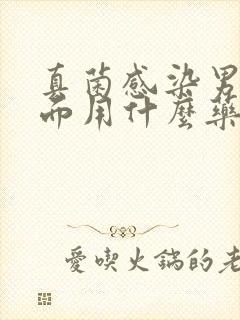 真菌感染男
而用什麼藥
愛喫火鍋的老